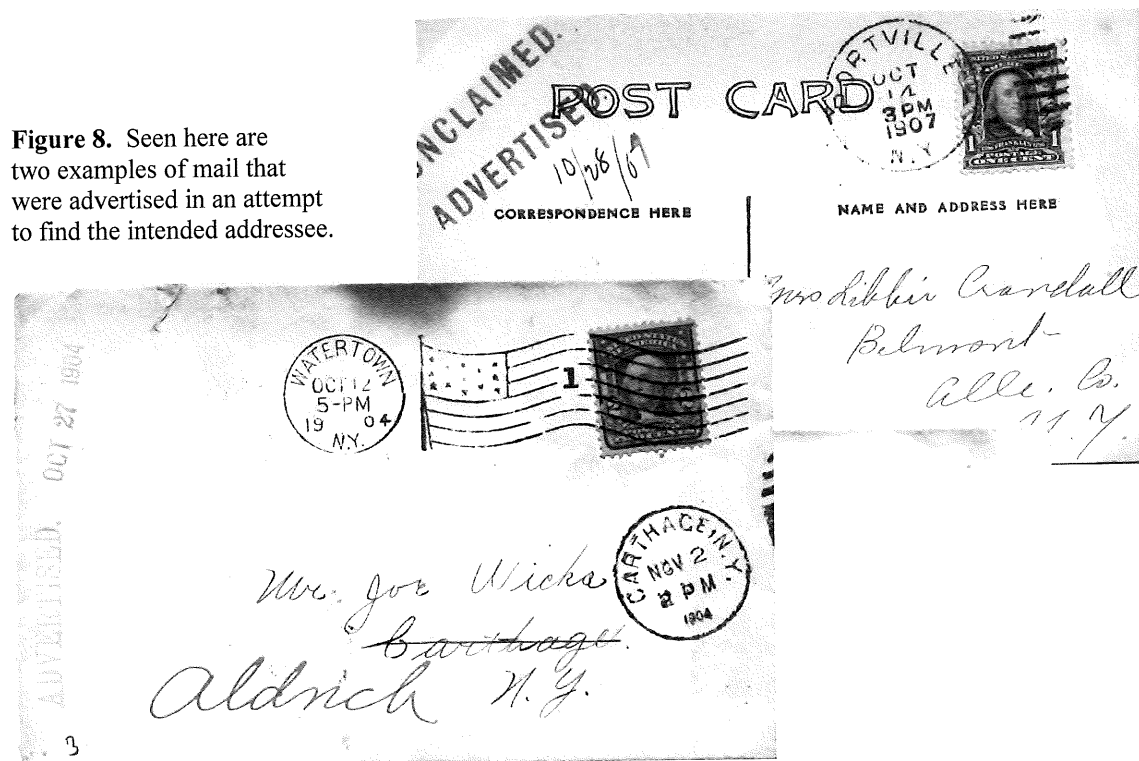 Figure 8. Seen here are
two examples of mail that
were advertised in an attempt
to find the intended addressee.
UNCLAIMED.
ADVERTISED
10/28/07
POST CARD
PORTVILLE
OCT
14
3 PM
1907
N.Y.
1 1
ONE CENT
CORRESPONDENCE HERE
NAME AND ADDRESS HERE
Mrs Libbie Crandall
Belmont
Alle. Co.
N. Y.
WATERTOWN
OCT 12
5-PM
19 04
N.Y.
1
ADVERTISED. OCT 27 1904
CARTHAGE, N.Y.
NOV 2
2 PM
1904
Mr. Joe Wicks
Carthage.
Aldrich N.Y.
3